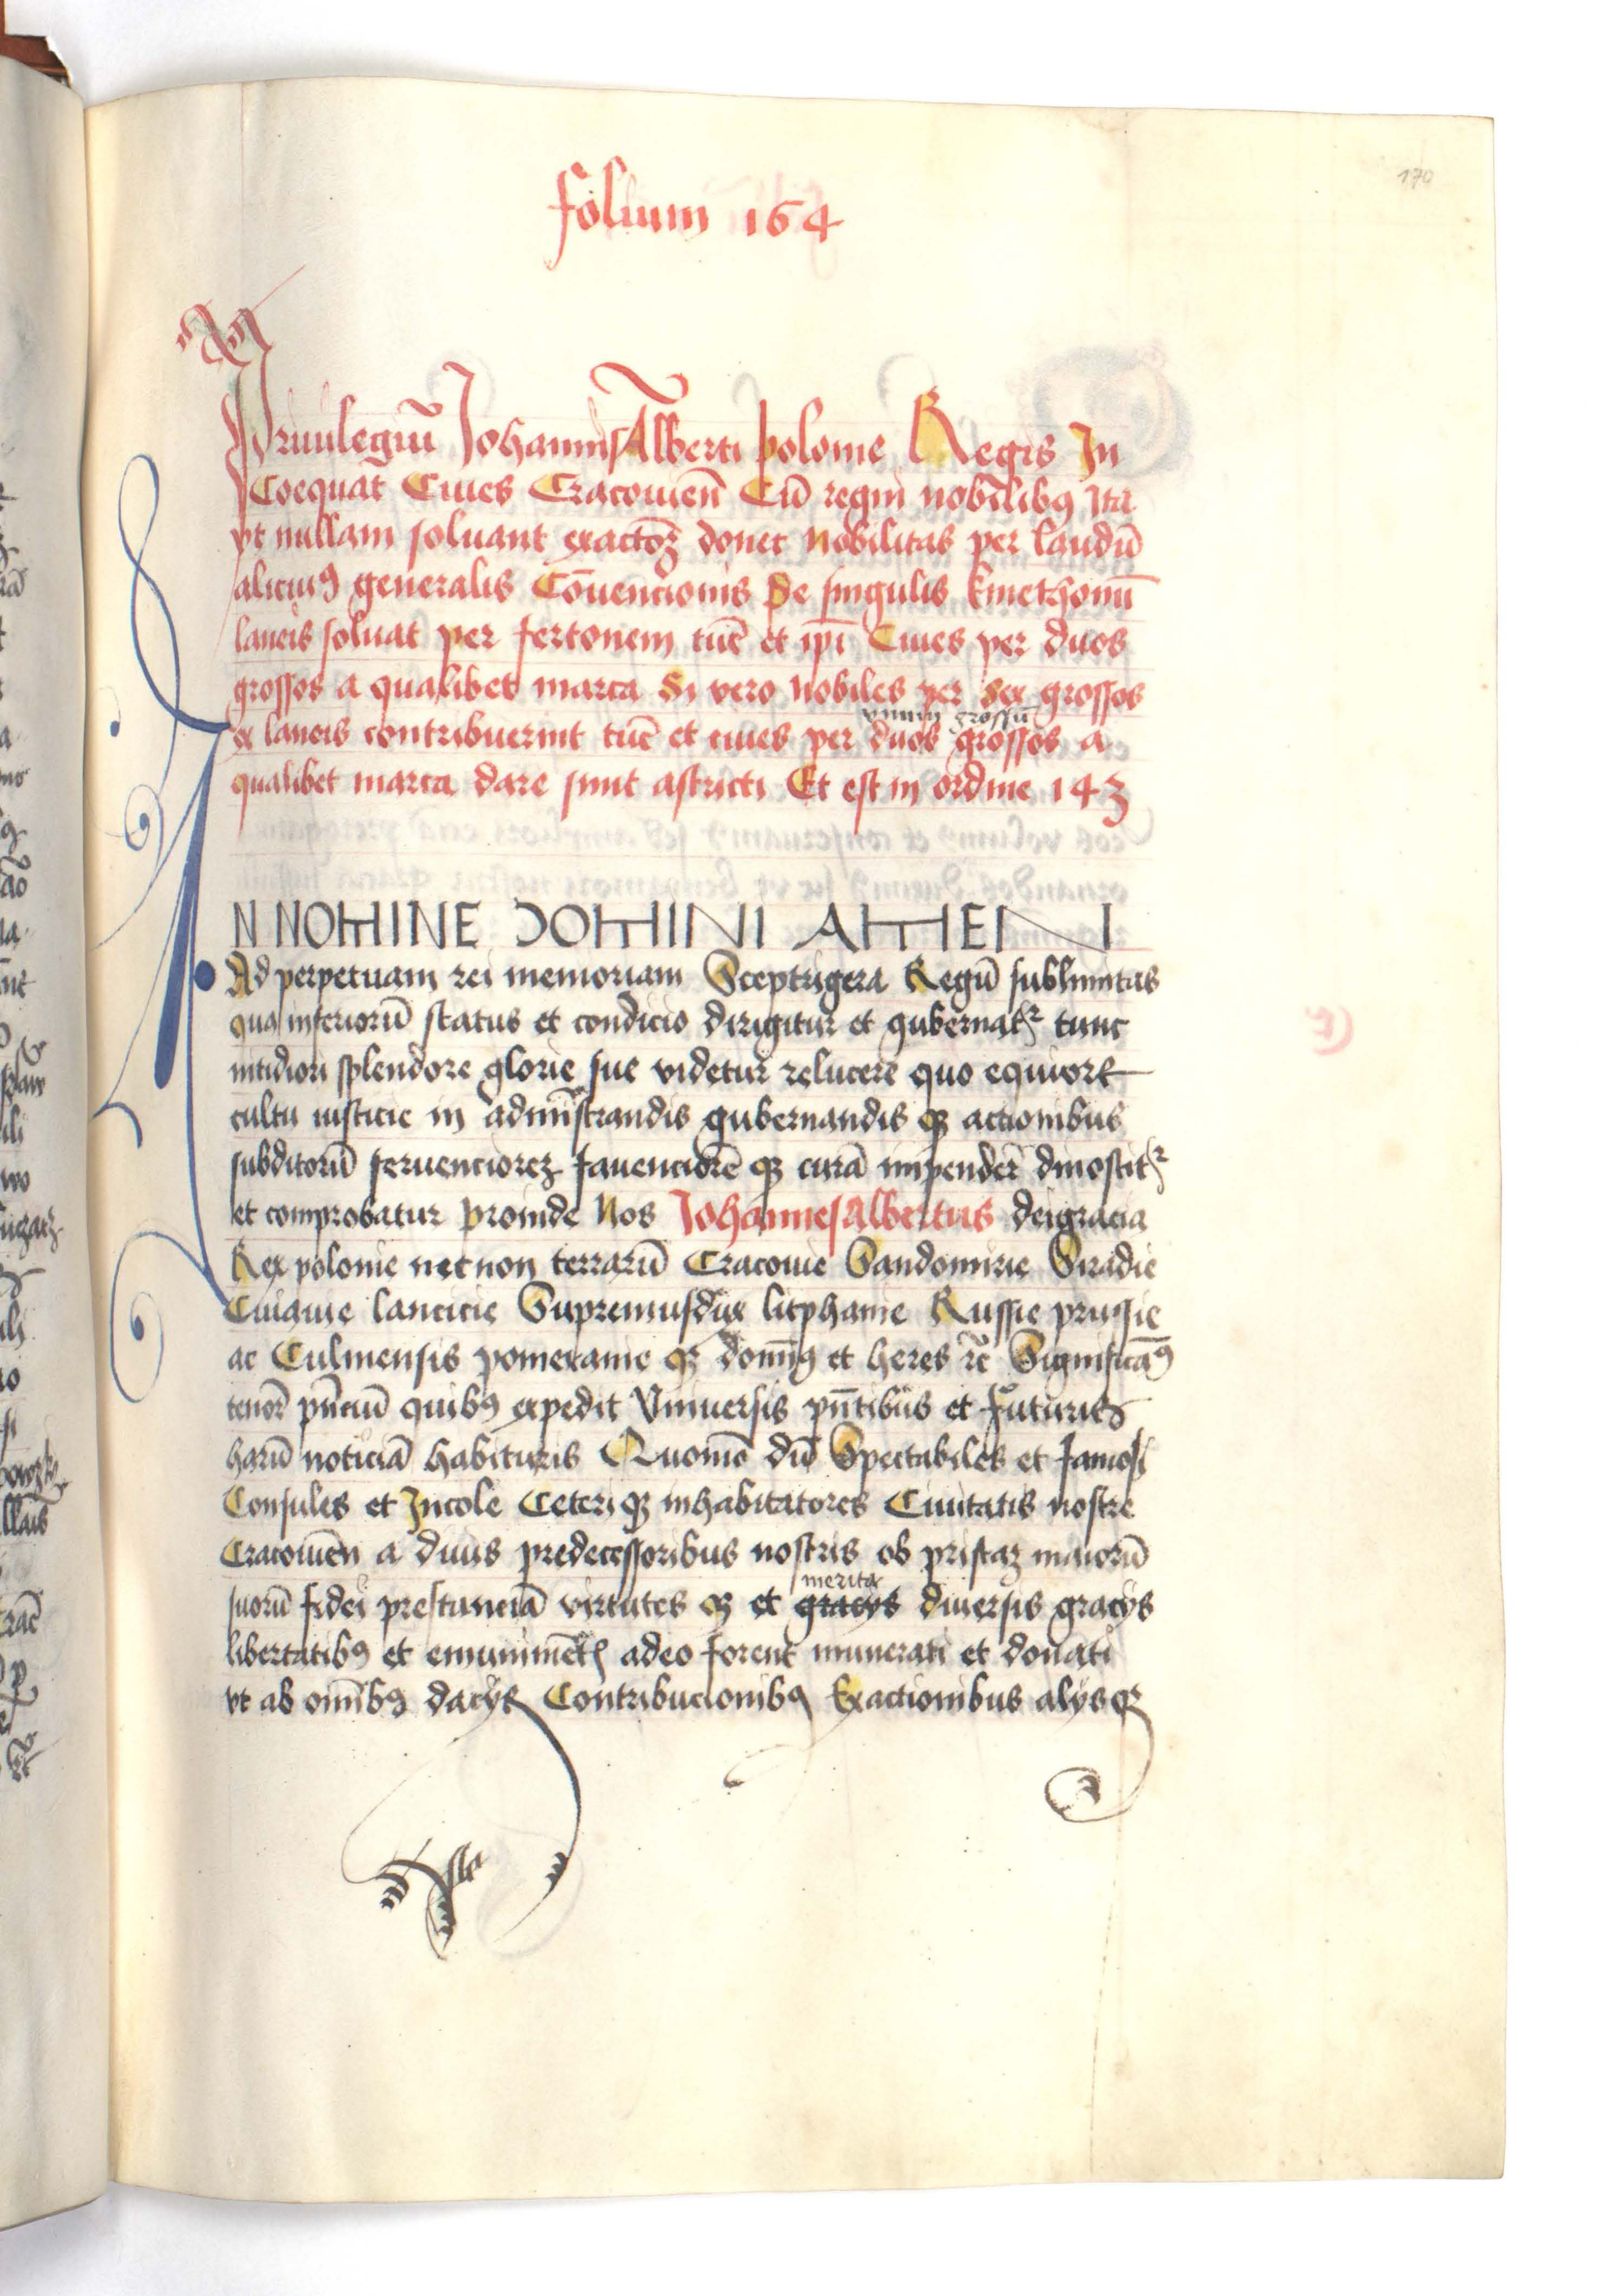 170
folium 164
Priuilegiū Johannis Alberti polonie Regis In
Coequat Ciues Cracouien̄ Cū regni nobilibꝯ Ita
vt nullam soluant exactōꝫ donec Nobilitas per laudū
alicuiꝯ generalis Cōuencionis De singulis kmethonū
laneis soluat per fertonem tūc et ip̄i Ciues per duos
grossos a qualibet marca Si vero Nobiles per sex grossos
vnum grossū
ex laneis contribuerint tūc et ciues per duos grossos a
qualibet marca dare sunt astricti Et est in ordine 143
IN NOMINE DOMINI AMEN
Ad perpetuam rei memoriam Sceptrigera Regū sublimitas
qua inferiorū status et condicio dirigitur et gubernatᷣ tunc
nitidiori splendore glorie sue videtur relucere quo equiore
cultu iusticie in admīstrandis gubernandis qꝫ actionibus
subditorū feruenciorēꝫ fauenciorē qꝫ curā impender̄ dinoscitᷣ
et comprobatur proinde Nos Johannes Albertus dei gracia
Rex polonie necnon terrarū Cracouie Sandomirie Siradie
Cuiauie lancicie Supremusdux litphanie Russie prussie
ac Culmensis pomeranie qꝫ domīꝯ et heres ꝛc̄ Significāꝯ
tenor̄ pn̄ciū quibꝯ expedit Vniuersis pn̄tibus et futuris
harū noticiā habituris Quomō dū Spectabiles et famosi
Consules et Incole Ceteri qꝫ inhabitatores Ciuitatis nostre
Cracouien̄ a diuis predecessoribus nostris ob priscaꝫ maiorū
merita
suorū fidei prestanciā virtutes qꝫ et gracys diuersis gracys
libertatibꝯ et emunimētꝭ adeo forent munerati et donati
vt ab omībꝯ dacys Contribucionibꝯ Exactionibus alys qꝫ